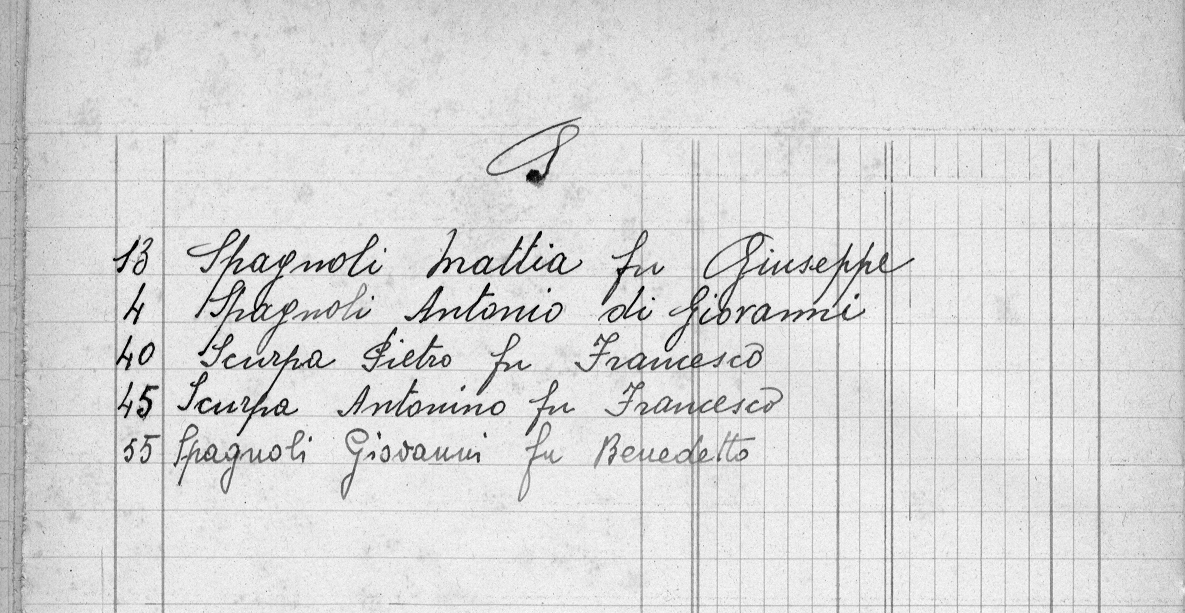 S
13 Spagnoli Mattia fu Giuseppe
4 Spagnoli Antonio di Giovanni
40 Scurpa Pietro fu Francesco
45 Scurpa Antonino fu Francesco
55 Spagnoli Giovanni fu Benedetto